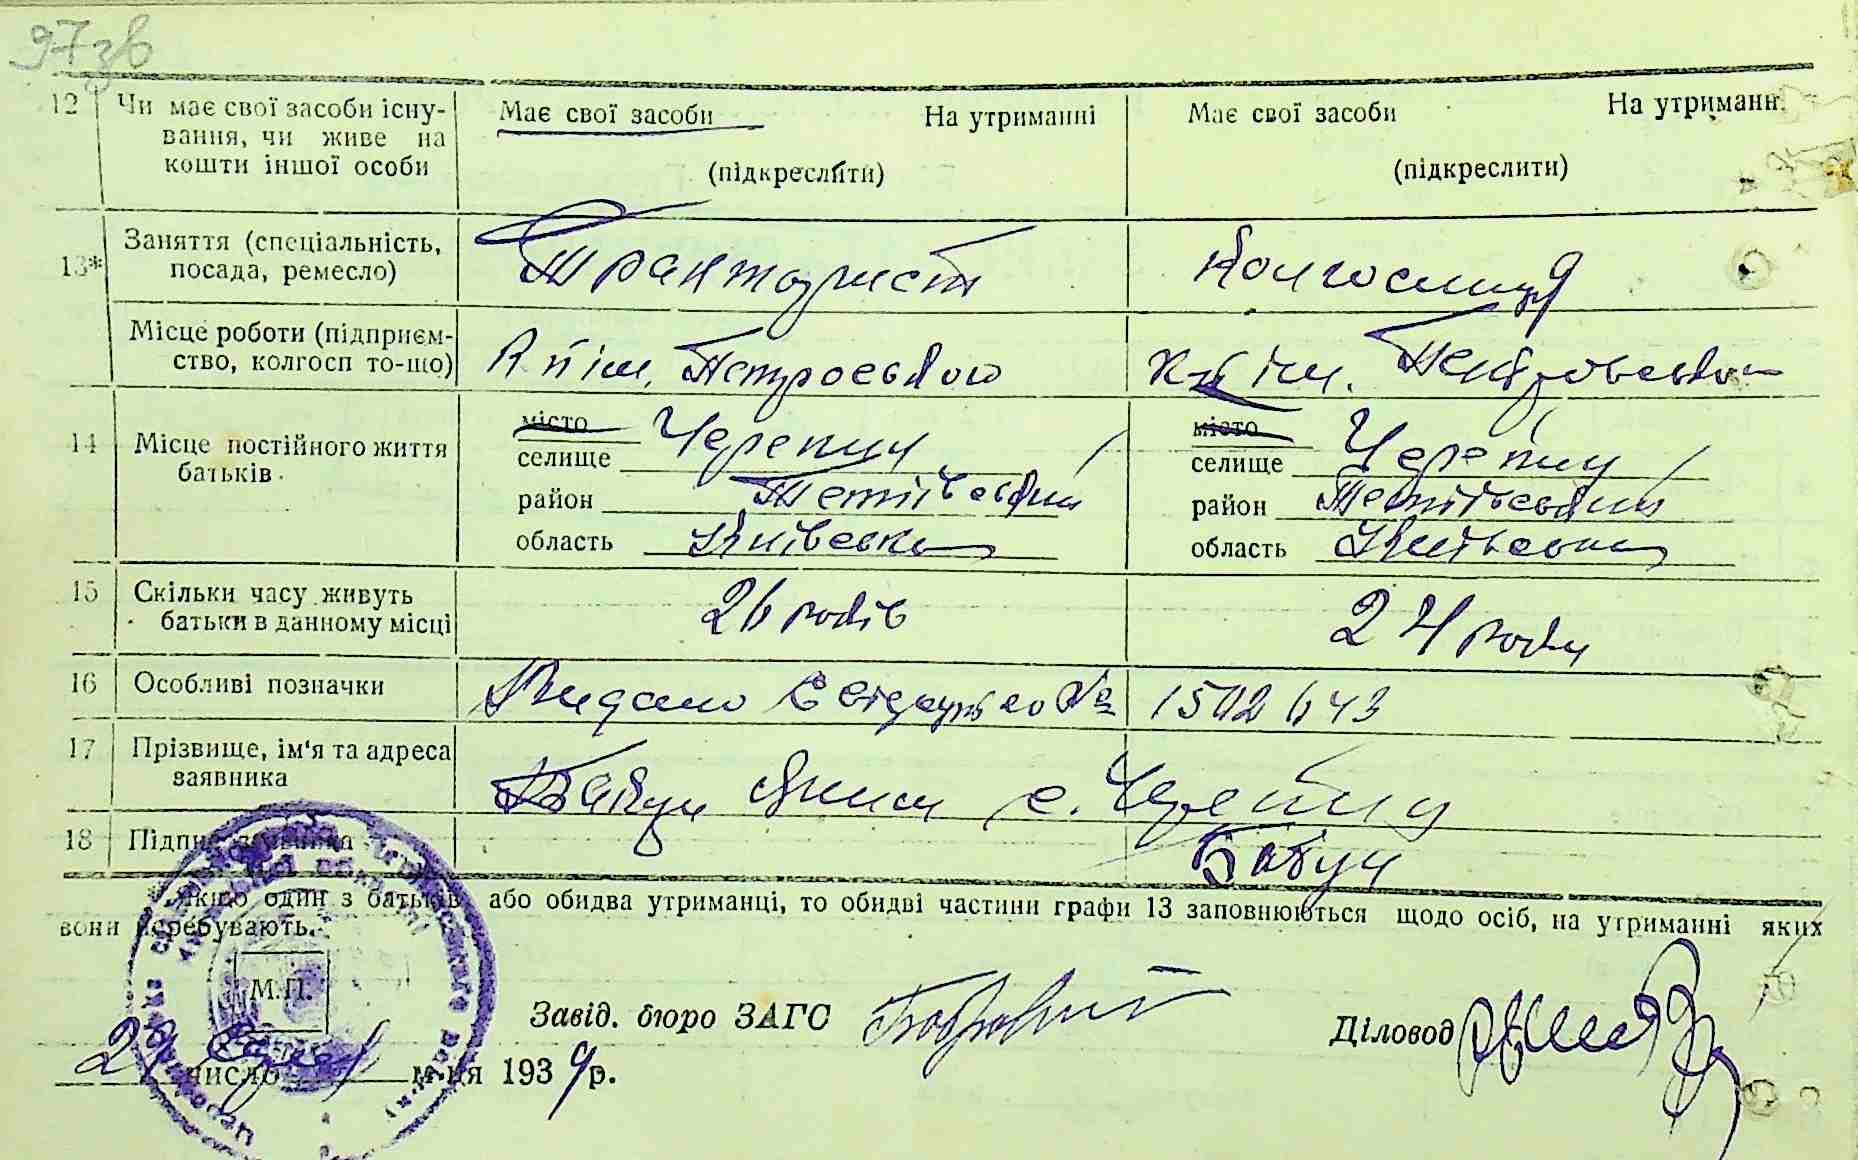 97зв
12 Чи має свої засоби існу-
вання, чи живе на
кошти іншої особи
Має свої засоби На утриманні
(підкреслити)
Має свої засоби На утриманн
(підкреслити)
13* Заняття (спеціальність,
посада, ремесло)
Тракторист
Колгоспниця
Місце роботи (підприєм-
ство, колгосп то-що)
К-п ім. Петровського
К-п ім. Петровського
14 Місце постійного життя
батьків
місто
селище Черепин
район Тетіївський
область Київська
місто
селище Черепин
район Тетіївський
область Київська
15 Скільки часу живуть
батьки в данному місці
26 років
24 роки
16 Особливі позначки
Видано свідоцтво № 1502643
17 Прізвище, ім'я та адреса
заявника
Бабун с. Черепин
18 Підпис заявника
Бабун
* Якщо один з батьків або обидва утриманці, то обидві частини графи 13 заповнюються щодо осіб, на утриманні яких
вони перебувають.
М.П.
Завід. бюро ЗАГС
Діловод
число м-ця 1939р.